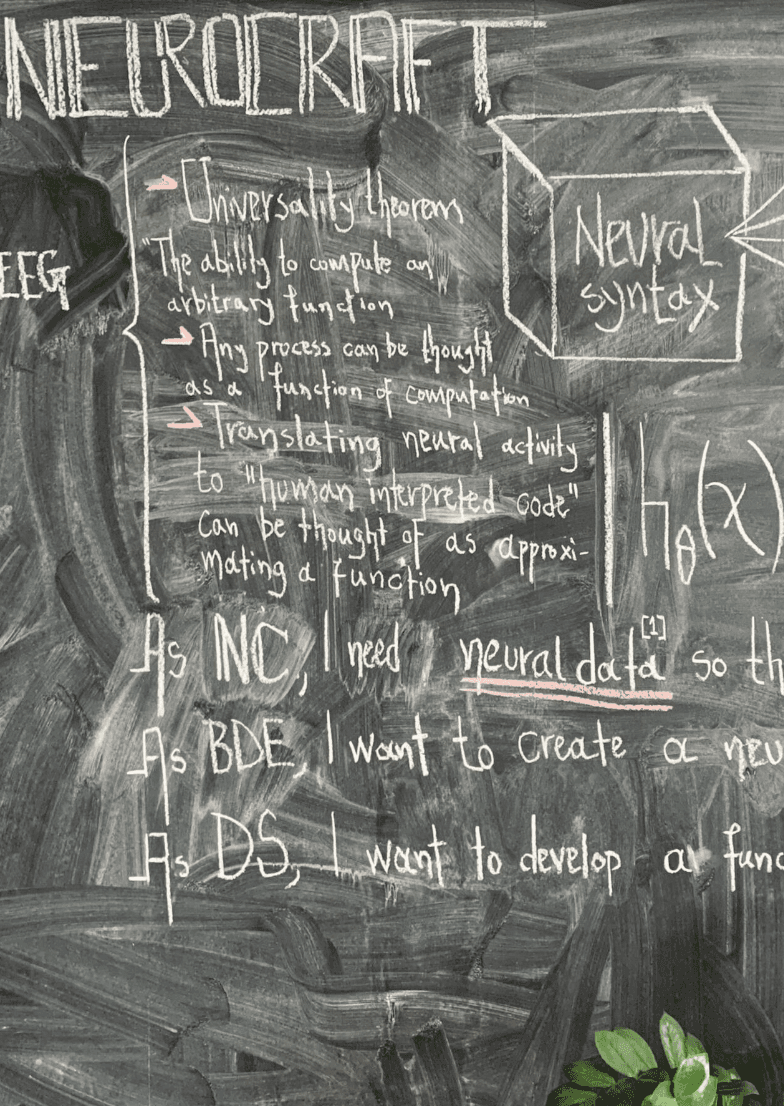 NEUROCRAFT
Universality theorem
"The ability to compute an
arbitrary function
EEG
Any process can be thought
as a function of computation
Translating neural activity
to "human interpreted code"
can be thought of as approxi-
mating a function
Neural
syntax
hθ(x)
As NC, I need neural data[1] so th
As BDE, I want to create a neu
As DS, I want to develop a func